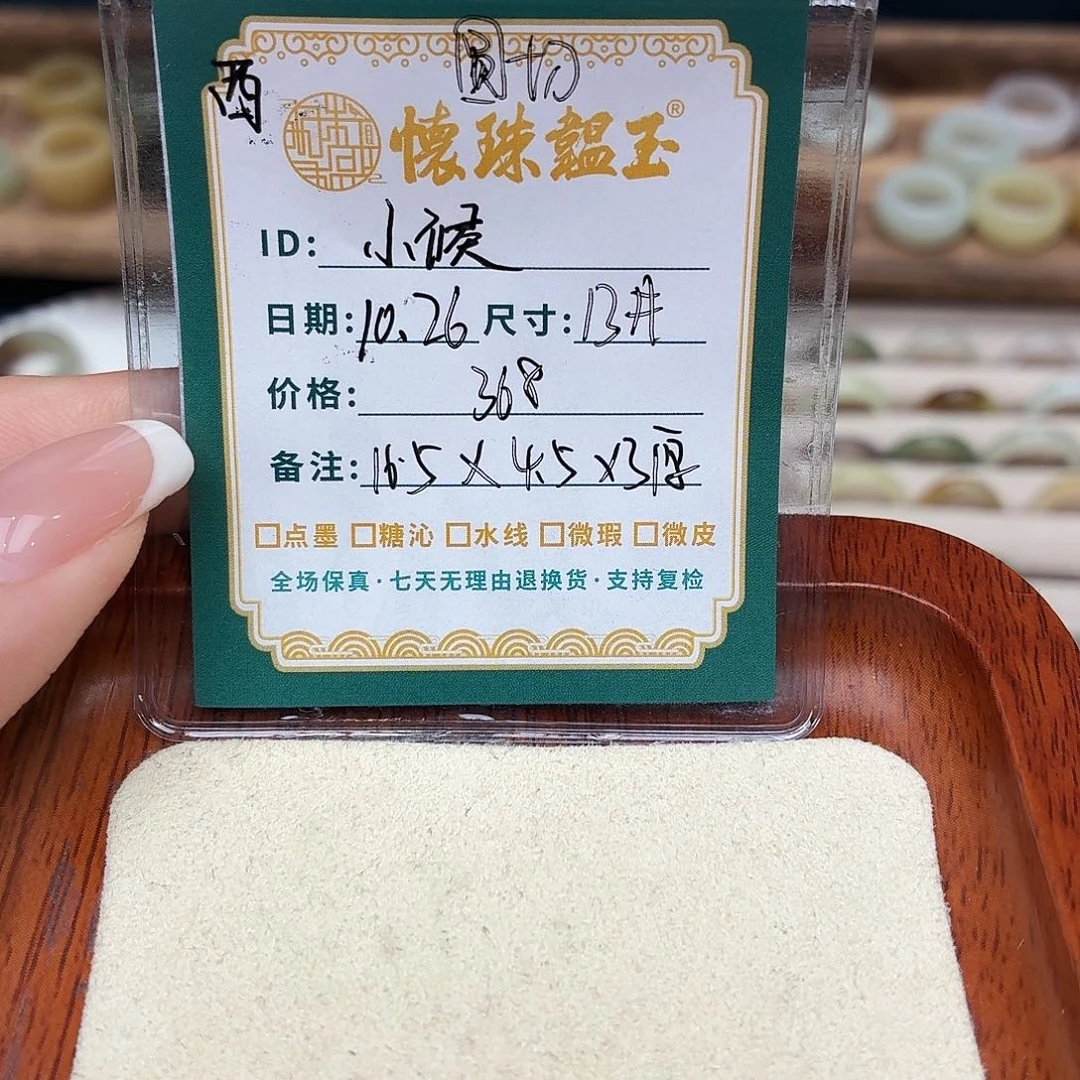 圆切
西
懷珠韞玉®
ID: 小候
日期: 10.26 尺寸: 13井
价格: 368
备注: 16.5 X 4.5 X3厚
□点墨 □糖沁 □水线 □微瑕 □微皮
全场保真·七天无理由退换货·支持复检